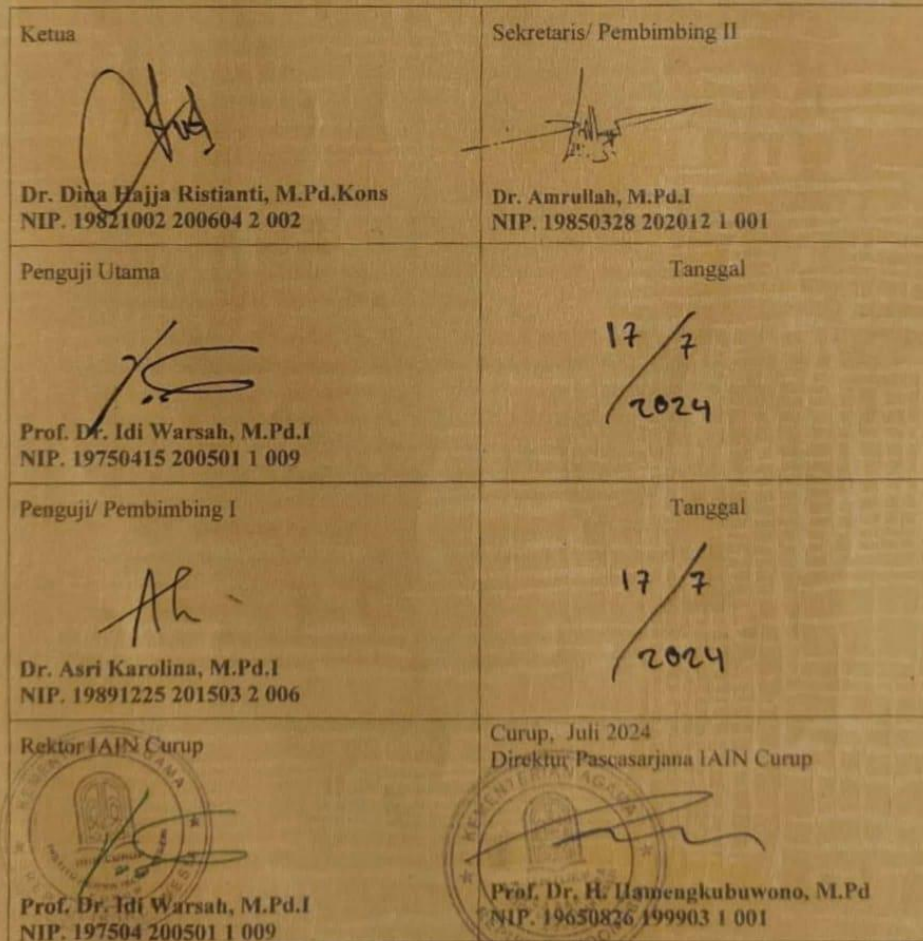 Ketua
Dr. Dina Hajja Ristianti, M.Pd.Kons
NIP. 19821002 200604 2 002
Sekretaris/ Pembimbing II
Dr. Amrullah, M.Pd.I
NIP. 19850328 202012 1 001
Penguji Utama
Prof. Dr. Idi Warsah, M.Pd.I
NIP. 19750415 200501 1 009
Tanggal
17/7
2024
Penguji/ Pembimbing I
Dr. Asri Karolina, M.Pd.I
NIP. 19891225 201503 2 006
Tanggal
17/7
2024
Rektor IAIN Curup
KEMENTERIAN AGAMA
Prof. Dr. Idi Warsah, M.Pd.I
NIP. 197504 200501 1 009
Curup, Juli 2024
Direktur Pascasarjana IAIN Curup
KEMENTERIAN AGAMA
Prof. Dr. H. Hamengkubuwono, M.Pd
NIP. 19650826 199903 1 001